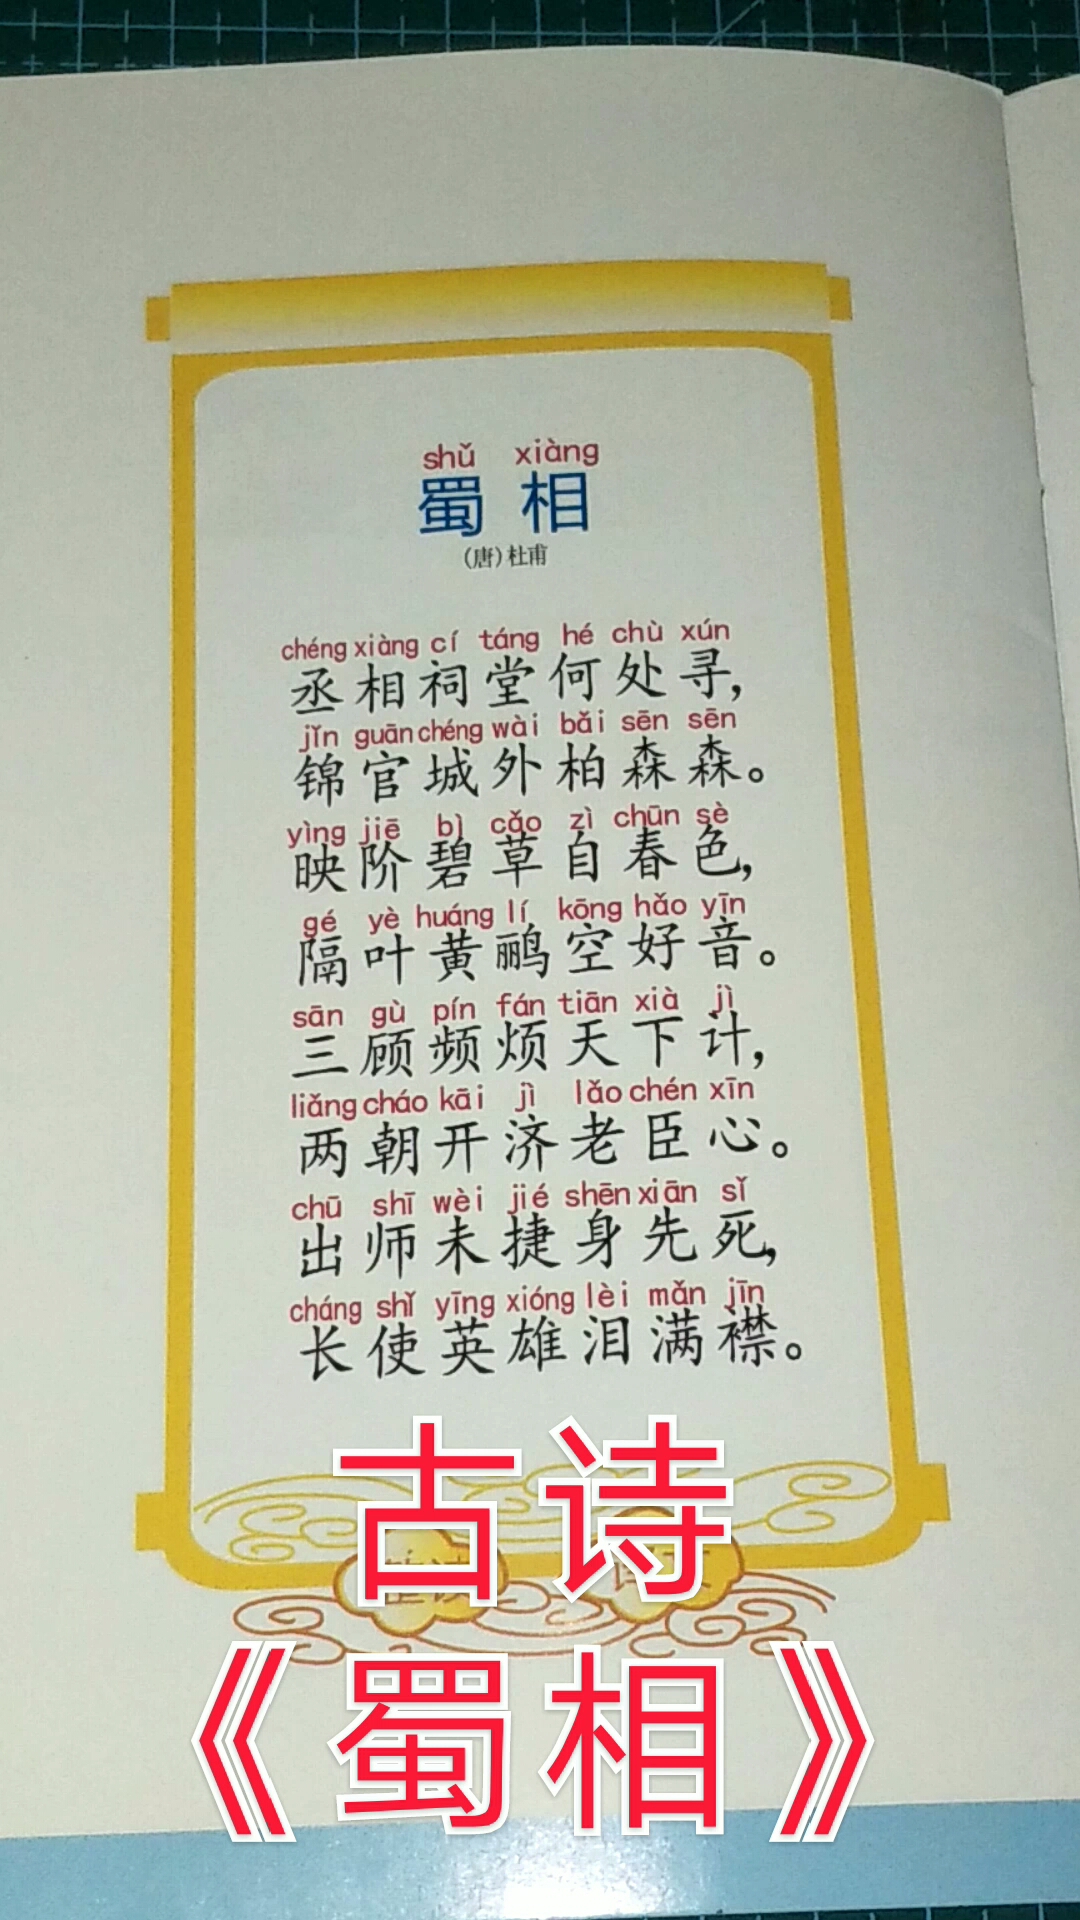 shǔ xiàng
蜀相
(唐)杜甫
chéng xiàng cí táng hé chù xún
丞相祠堂何处寻,
jǐn guān chéng wài bǎi sēn sēn
锦官城外柏森森。
yìng jiē bì cǎo zì chūn sè
映阶碧草自春色,
gé yè huáng lí kōng hǎo yīn
隔叶黄鹂空好音。
sān gù pín fán tiān xià jì
三顾频烦天下计,
liǎng cháo kāi jì lǎo chén xīn
两朝开济老臣心。
chū shī wèi jié shēn xiān sǐ
出师未捷身先死,
cháng shǐ yīng xióng lèi mǎn jīn
长使英雄泪满襟。
古诗
《蜀相》